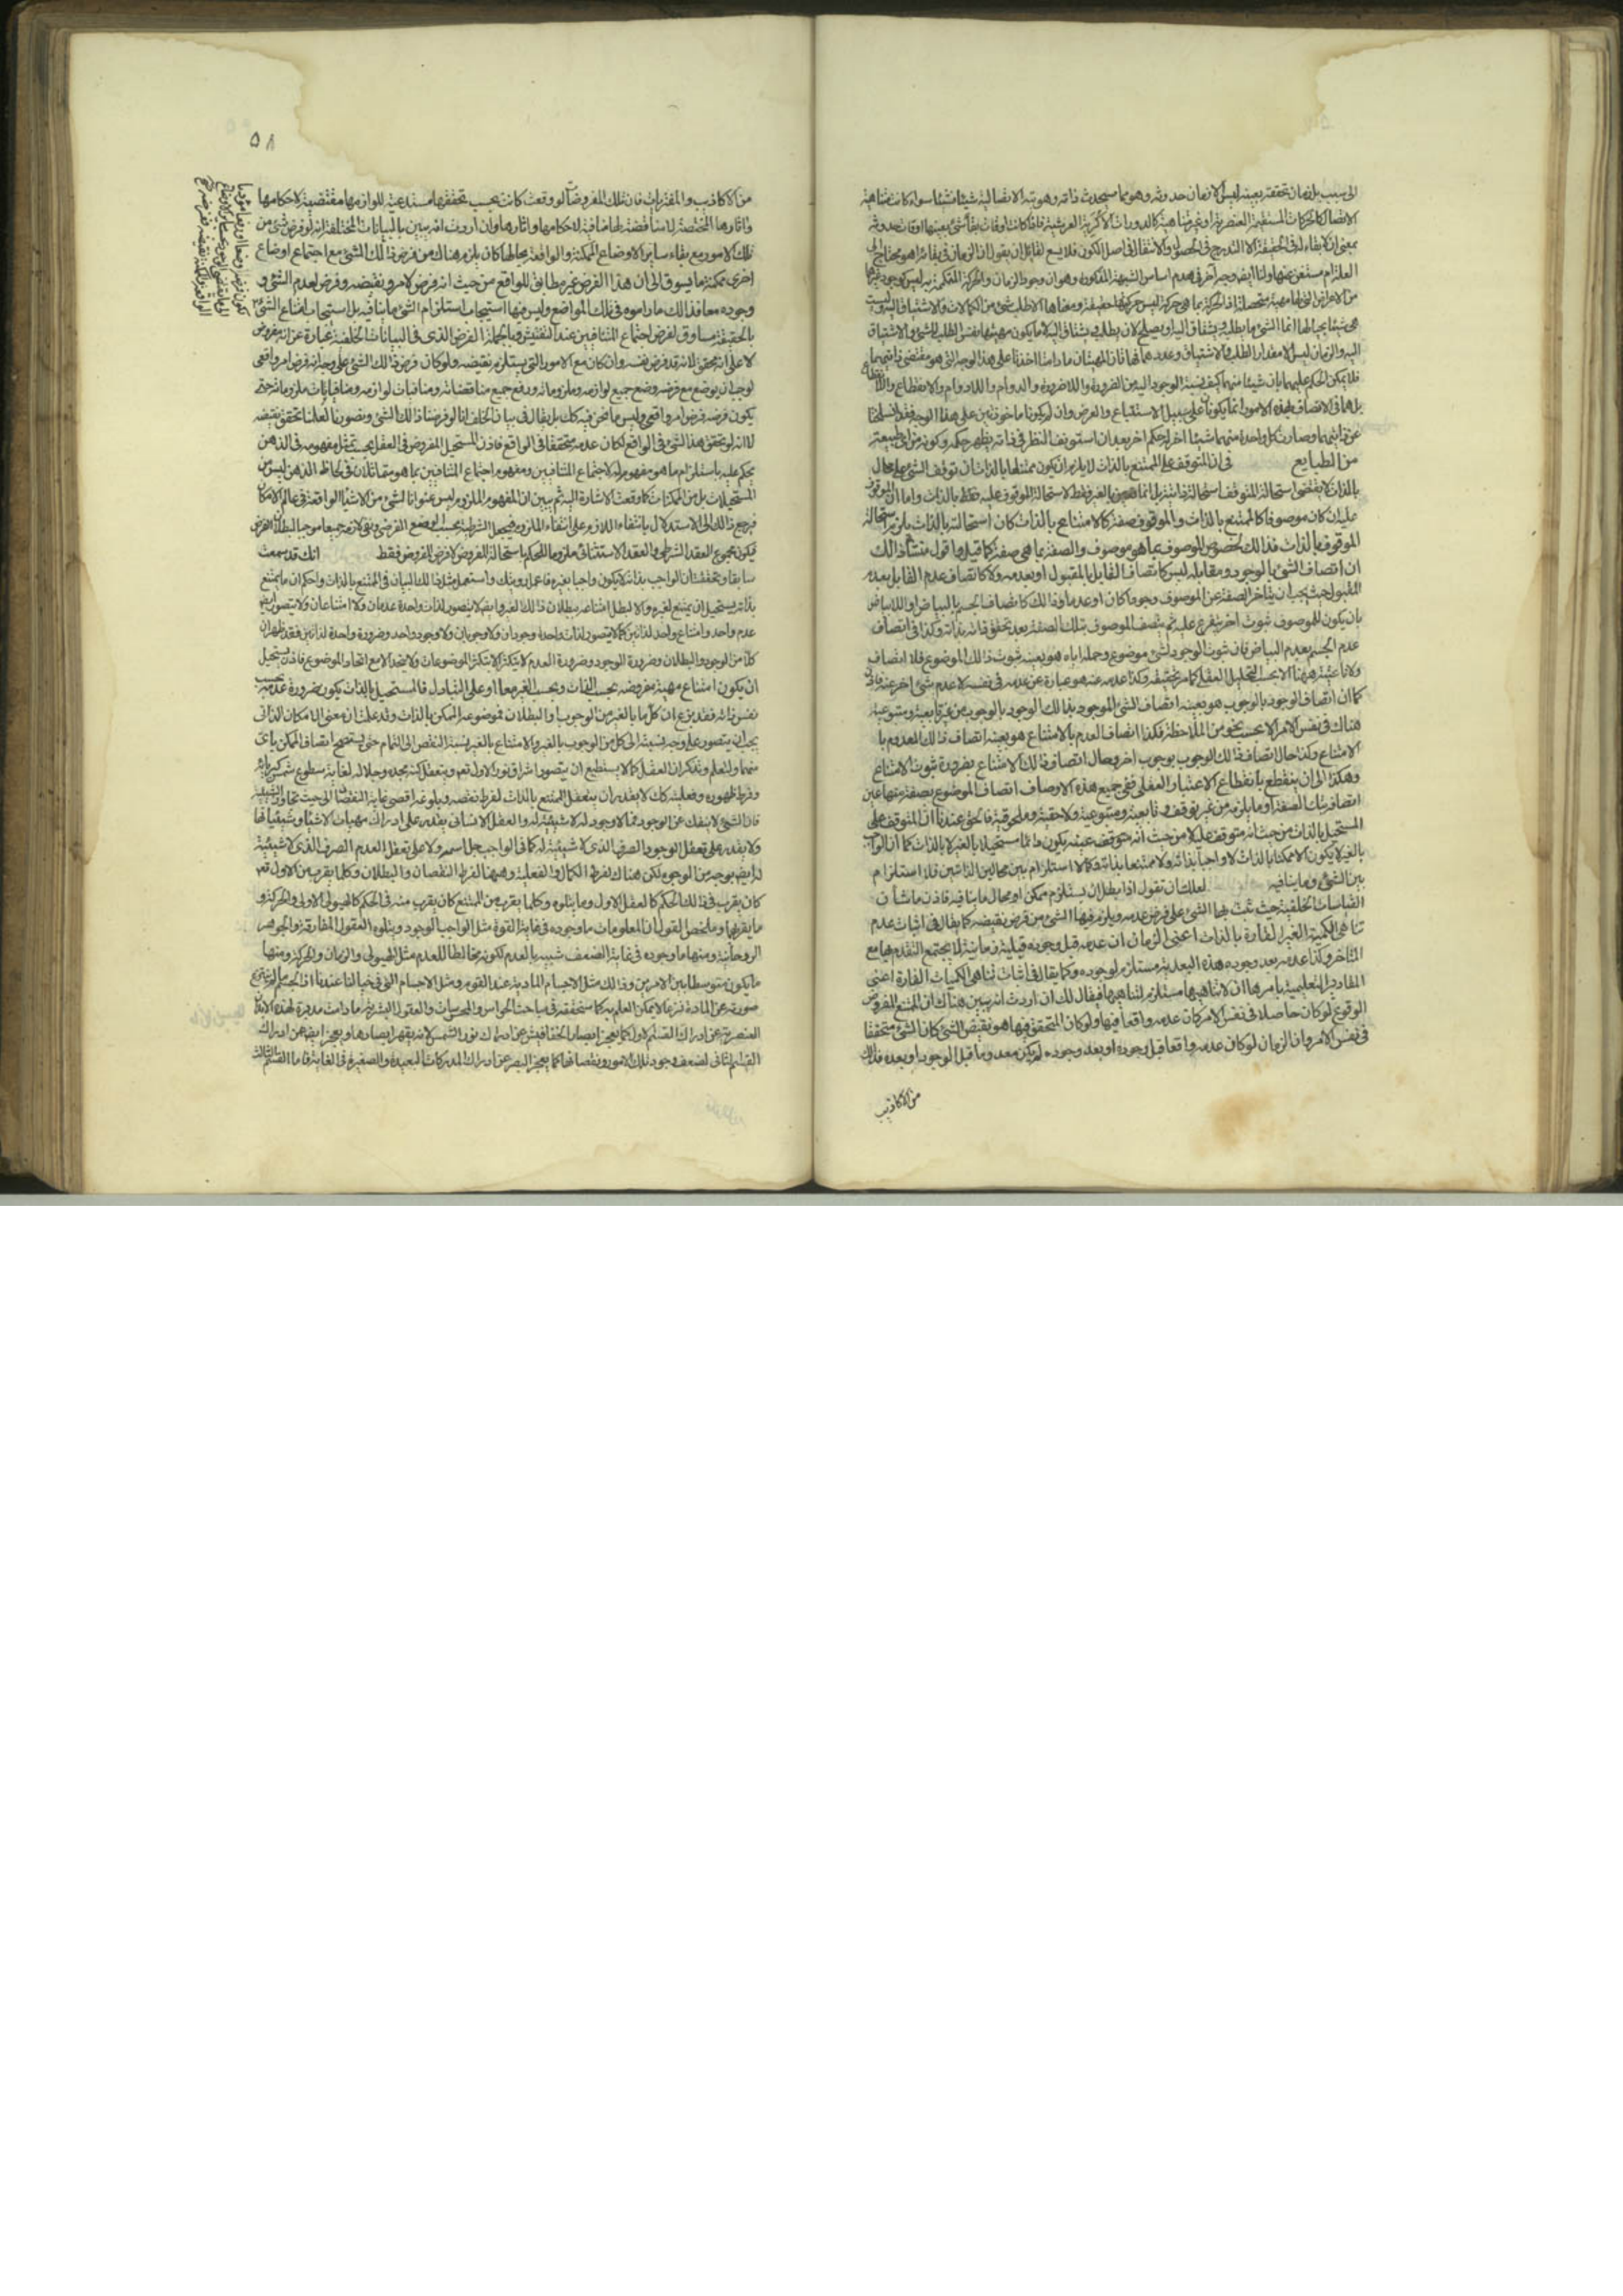 الى سبب بل زمان تحققه بعينه ليس الا زمان حدوثه وهو مما سيحدث ذاته وهويته الاتصالية شيئا فشيئا سواء كانت متناهية
الاتصال كالحركات المستقيمة العنصرية او غير متناهية كالدورات الاكرية العرشية فاذا كانت اوقات بقاء شئ بعينها اوقات حدوثه
بمعنى ان لا بقاء له في الحقيقة الا التدرج في الحصول والانتقال في اصل الكون فلا يسع لقائل ان يقول ان الزمان في بقائه اهو محتاج الى
العلة ام مستغن عنها ولنا ايضا وجه آخر في هدم اساس الشبهة المذكورة وهو ان وجود الزمان والحركة المتقدرة به ليس كوجود غيرها
من الاعراض التي لها مهية متحصلة اذ الحركة بما هي حركة ليس حركتها حقيقة ومعناها الا طلب شئ من الكمالات والاشتياق اليه وليست
هي شيئا بحيالها انما الشئ ما يطلبه ويشتاق اليه او يصلح لان يطلب ويشتاق اليه لا ما يكون مهيتها نفس الطلب للشئ والاشتياق
اليه والزمان ليس الا مقدار الطلب والاشتياق وعددهما فهاتان المهيتان ما دامتا اخذتا على هذا الوجه الذي هو مقتضى ذاتيهما
فلا يمكن الحكم عليهما بان شيئا منهما كيف نسبة الوجود اليه من الضرورة واللاضرورة والدوام واللادوام والانقطاع واللاانقطاع
بل هما في الاتصاف بهذه الامور انما يكونان على سبيل الاستتباع والعرض وان لم يكونا ماخوذين على هذا الوجه فقد انسلختا
عن ذاتيهما وصارت كل واحدة منهما شيئا آخر له حكم آخر بعد ان استونف النظر في ذاته يظهر حكمه وكونه من اي طبيعة
من الطبايع في ان المتوقف على الممتنع بالذات لا يلزم ان يكون ممتنعا بالذات ان توقف الشئ على محال
بالذات لا يقتضي استحالة المتوقف استحالة ذاتية بل انما هي بالغير فقط لاستحالة الموقوف عليه فقط بالذات واما ان الموقوف
عليه ان كان موصوفا كالممتنع بالذات والموقوف صفة كالامتناع بالذات كان استحالته بالذات يلزم استحالة
الموقوف بالذات فذالك لخصوص الموصوف بما هو موصوف والصفة بما هي صفة كما قيل واقول منشأ ذالك
ان اتصاف الشئ بالوجود ومقابله ليس كاتصاف القابل بالمقبول او بعدمه ولا كاتصاف عدم القابل بعدم
المقبول حيث يجب ان يتاخر الصفة عن الموصوف وجودا كان او عدما وذالك كاتصاف الجسم بالبياض او اللابياض
بان يكون للموصوف ثبوت آخر يتفرع عليه ثم يتصف الموصوف بتلك الصفة بعد تحقق ذاته بذاته وكذا في اتصاف
عدم الجسم بعدم البياض فان ثبوت الوجود لشئ موضوع وحمله اياه هو بعينه ثبوت ذالك الموضوع فلا اتصاف
ولا ناعتية ههنا الا بحسب التحليل العقلي كما مر تحقيقه وكذا عدمه عنه هو عبارة عن عدمه في نفسه لا عدم شئ آخر عنه فاذن
كما ان اتصاف الوجود بالوجوب هو بعينه اتصاف الشئ الموجود بذالك الوجود بالوجوب من غير تابعية ومتبوعية
هناك في نفس الامر الا بحسب نحو من الملاحظة فكذا اتصاف العدم بالامتناع هو بعينه اتصاف ذالك المعدوم با
لامتناع وكذا حال اتصاف ذالك الوجوب بوجوب آخر وحال اتصاف ذالك الامتناع بضرورة ثبوت الامتناع
وهكذا الى ان ينقطع بانقطاع الاعتبار العقلي ففي جميع هذه الاوصاف اتصاف الموضوع بصفة منها عين
اتصافه بتلك الصفة او ما يلزمه من غير توقف وتابعية ومتبوعية ولاحقية وملحوقية فالحق عندنا ان المتوقف على
المستحيل بالذات من حيث انه متوقف عليه لا من حيث انه متوقفه عينه يكون دائما مستحيلا بالغير لا بالذات كما ان الواجب
بالغير لا يكون الا ممكنا بالذات لا واجبا بذاته ولا ممتنعا بذاته وكما لا استلزام بين محالين ذاتيين فلا استلزام
بين الشئ وما ينافيه لعلك ان تقول اذا بطل ان يستلزم ممكن او محال ما ينافيه فاذن ما شأن
القياسات الخلفية حيث يثبت بها الشئ على فرض عدمه ويلزم فيها الشئ من فرض نقيضه كما يقال في اثبات عدم
تناهي الكمية الغير القارة بالذات اعني الزمان ان عدمه قبل وجوده قبلية زمانية لا يجتمع المتقدم بها مع
المتاخر وكذا عدمه بعد وجوده هذه البعدية مستلزم لوجوده وكما يقال في اثبات تناهي الكميات القارة اعني
المقادير التعليمية باسرها ان لا تناهيها مستلزم لتناهيها فيقال لك ان اردت انه يبين هناك ان الممتنع المفروض
الوقوع لو كان حاصلا في نفس الامر كان عدمه واقعا فيها ولو كان المتحقق فيها هو نقيض الشئ كان الشئ متحققا
في نفس الامر وان الزمان لو كان عدمه واقعا قبل وجوده او بعد وجوده لم يكن معدوما قبل الوجود او بعده فذلك
من الاكاذيب
٥٨
من الاكاذيب والمفتريات فان تلك المفروضات لو وقعت كانت بحسب تحققها مستدعية للوازمها مقتضية لاحكامها
واثارها المختصة لا مناقضة لها منافية لاحكامها واثارها وان اردت انه يبين بالبيانات المختلفة انه لو فرض شئ من
تلك الامور مع بقاء ساير الاوضاع الممكنة والواقعة بحالها كان يلزم هناك من فرض ذالك الشئ مع اجتماع اوضاع
اخرى ممكنة ما يسوق الى ان هذا الفرض غير مطابق للواقع من حيث انه فرض لامر ونقيضه وفرض لعدم الشئ و
وجوده معا فذالك ما راموه في تلك المواضع وليس منها استيجاب استلزام الشئ ما ينافيه بل استيجاب امتناع الشئ
بالحقيقة مساوق لفرض اجتماع المتنافيين عند التفتيش وبالجملة الفرض الذي في البيانات الخلفية عبارة عن انه مفروض
لا على انه تحقق لانه قد فرض نفسه وان كان مع الامور التي يستلزم نقيضه ولو كان فرض ذالك الشئ على وجه انه فرض امر واقعي
لوجب ان يوضع مع فرضه وضع جميع لوازمه وملزوماته ورفع جميع مناقضاته ومنافيات لوازمه ومنافيات ملزوماته حتى
يكون فرضه فرض امر واقعي وليس ما نحن فيه كك بل يقال في بيان الخلف انا لو فرضنا ذالك الشئ وتصورناه لعلمنا تحقق نقيضه
لا انه لو تحقق هذا الشئ في الواقع لكان عدمه متحققا في الواقع فاذن المستحيل المفروض في العقل بحسب تمثل مفهومه في الذهن
يحكم عليه باستلزام ما هو مفهوم له لاجتماع المتنافيين ومفهوم اجتماع المتنافيين بما هو متمثلان في لحاظ الذهن ليس من
المستحيلات بل من الممكنات كما وقعت الاشارة اليه ثم يبين ان المفهوم الملزوم ليس عنوانا لشئ من الاشياء الواقعة في عالم الامكان
فرجع ذالك الى الاستدلال بانتفاء اللازم على انتفاء الملزوم فيجعل الشرطية بحسب الوضع الفرضي ونفي لازمه جميعا موجبا لبطلان الفرض
فيكون مجموع العقد الشرطي والعقد الاستثنائي ملزوما للحكم باستحالة المفروض لا فرض المفروض فقط انك قد سمعت
سابقا وتحققت ان الواجب بذاته لا يكون واجبا بغيره فاعمل رويتك واستعمل مثل ذالك البيان في الممتنع بالذات واحكم ان ما يمتنع
بذاته يستحيل ان يمتنع لغيره والا لبطل امتناعه ببطلان ذالك الغير وايضا لا يتصور لذات واحدة عدمان ولا امتناعان ولا يتصور ايضا
عدم واحد وامتناع واحد لذاتين كما لا يتصور لذات واحدة وجودان ولا وجوبان ولا وجود واحد وضرورة واحدة لذاتين فقد ظهر ان
كلا من الوجود والبطلان وضرورة الوجود وضرورة العدم لا يتكثر الا بتكثر الموضوعات ولا يتحد الا مع اتحاد الموضوع فاذن يستحيل
ان يكون امتناع مهية مفروضة بحسب الذات وبحسب الغير معا او على التبادل فالمستحيل بالذات يكون ضرورة عدمه بحسب
نفس ذاته فقد بزغ ان كل ما بالغير من الوجوب والبطلان فموضوعه الممكن بالذات وقد علمت ان معنى الامكان الذاتي
يجب ان يتصور على وجه نسبته الى كل من الوجوب بالغير والامتناع بالغير نسبة النقص الى التمام حتى يستصح اتصاف الممكن باي
منهما ولتعلم وتذكر ان العقل كما لا يستطيع ان يتصور اشراق نور الاول تعم ويتعقل كنه مجده وجلاله لغاية سطوع شمس كبريائه
وفرط ظهوره وفعليته كك لا يقدر ان يتعقل الممتنع بالذات لفرط نقصه وبلوغه اقصى غاية النقصان الى حيث تجاوز الشيئية
فان الشئ لا ينفك عن الوجود فما لا وجود له لا شيئية له والعقل الانساني يقدر على ادراك مهيات الاشياء وشيئياتها
ولا يقدر على تعقل الوجود الصرف الذي لا شيئية له كما في الواجب جل اسمه ولا على تعقل العدم الصرف الذي لا شيئية
له ايضا بوجه من الوجوه لكن هناك لفرط الكمال والفعلية وههنا لفرط النقصان والبطلان وكلما يقرب من الاول تعم
كان يقرب في ذالك الحكم كالعقل الاول وما يتلوه وكلما يقرب من الممتنع كان يقرب منه في الحكم كالهيولى الاولى والحركة و
ما يقربهما وملخص القول ان المعلومات ما وجوده في غاية القوة مثل الواجب الوجود ويتلوه العقول المفارقة والجواهر
الروحانية ومنها ما وجوده في غاية الضعف شبيه بالعدم لكونه مخالطا للعدم مثل الهيولى والزمان والحركة ومنها
ما يكون متوسطا بين الامرين وذالك مثل الاجسام المادية عند القوم ومثل الاجسام التي في خيالنا عندنا
صورته عن المادة نزعا لا يمكن العلم به كما سنحققه في مباحث الحواس والمحسوسات والعقول البشرية ما دامت مدبرة لهذه الابدان
العنصرية عن ادراك القسم الاول كما يعجز ابصار الخفافيش عن ادراك نور الشمس لانه يقهر ابصارها ويعجز ايضا عن ادراك
القسم الثاني لضعف وجود تلك الامور ونقصانها كما يعجز البصر عن ادراك المدركات البعيدة والصغيرة في الغاية فاما القسم الثالث